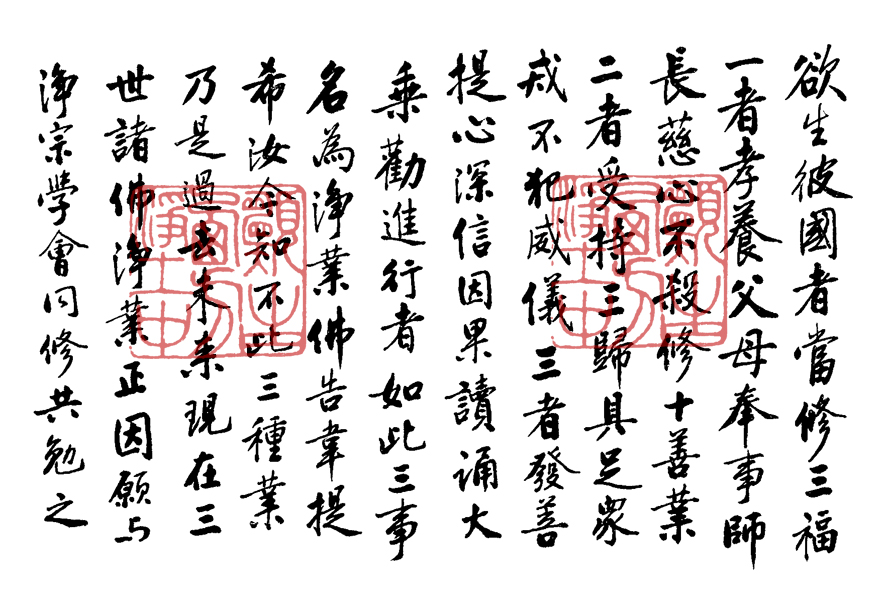 欲生彼國者當修三福
一者孝養父母奉事師
長慈心不殺修十善業
二者受持三歸具足眾
戒不犯威儀三者發菩
提心深信因果讀誦大
乘勸進行者如此三事
名為淨業佛告韋提
希汝今知不此三種業
乃是過去未來現在三
世諸佛淨業正因願与
淨宗學會同修共勉之
願生西方淨土中
願生西方淨土中